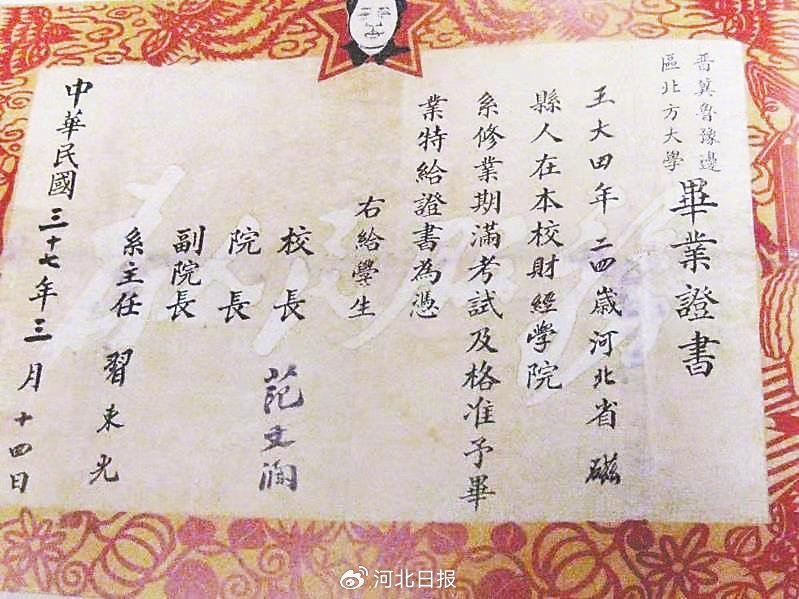 晋冀魯豫邊
區北方大學
畢業證書
王大田年二四歲河北省磁
縣人在本校財經學院
系修業期滿考試及格准予畢
業特給證書為憑
右給學生
校長 范文瀾
院長
副院長
系主任 習東光
中華民國三十七年三月十四日
河北日报